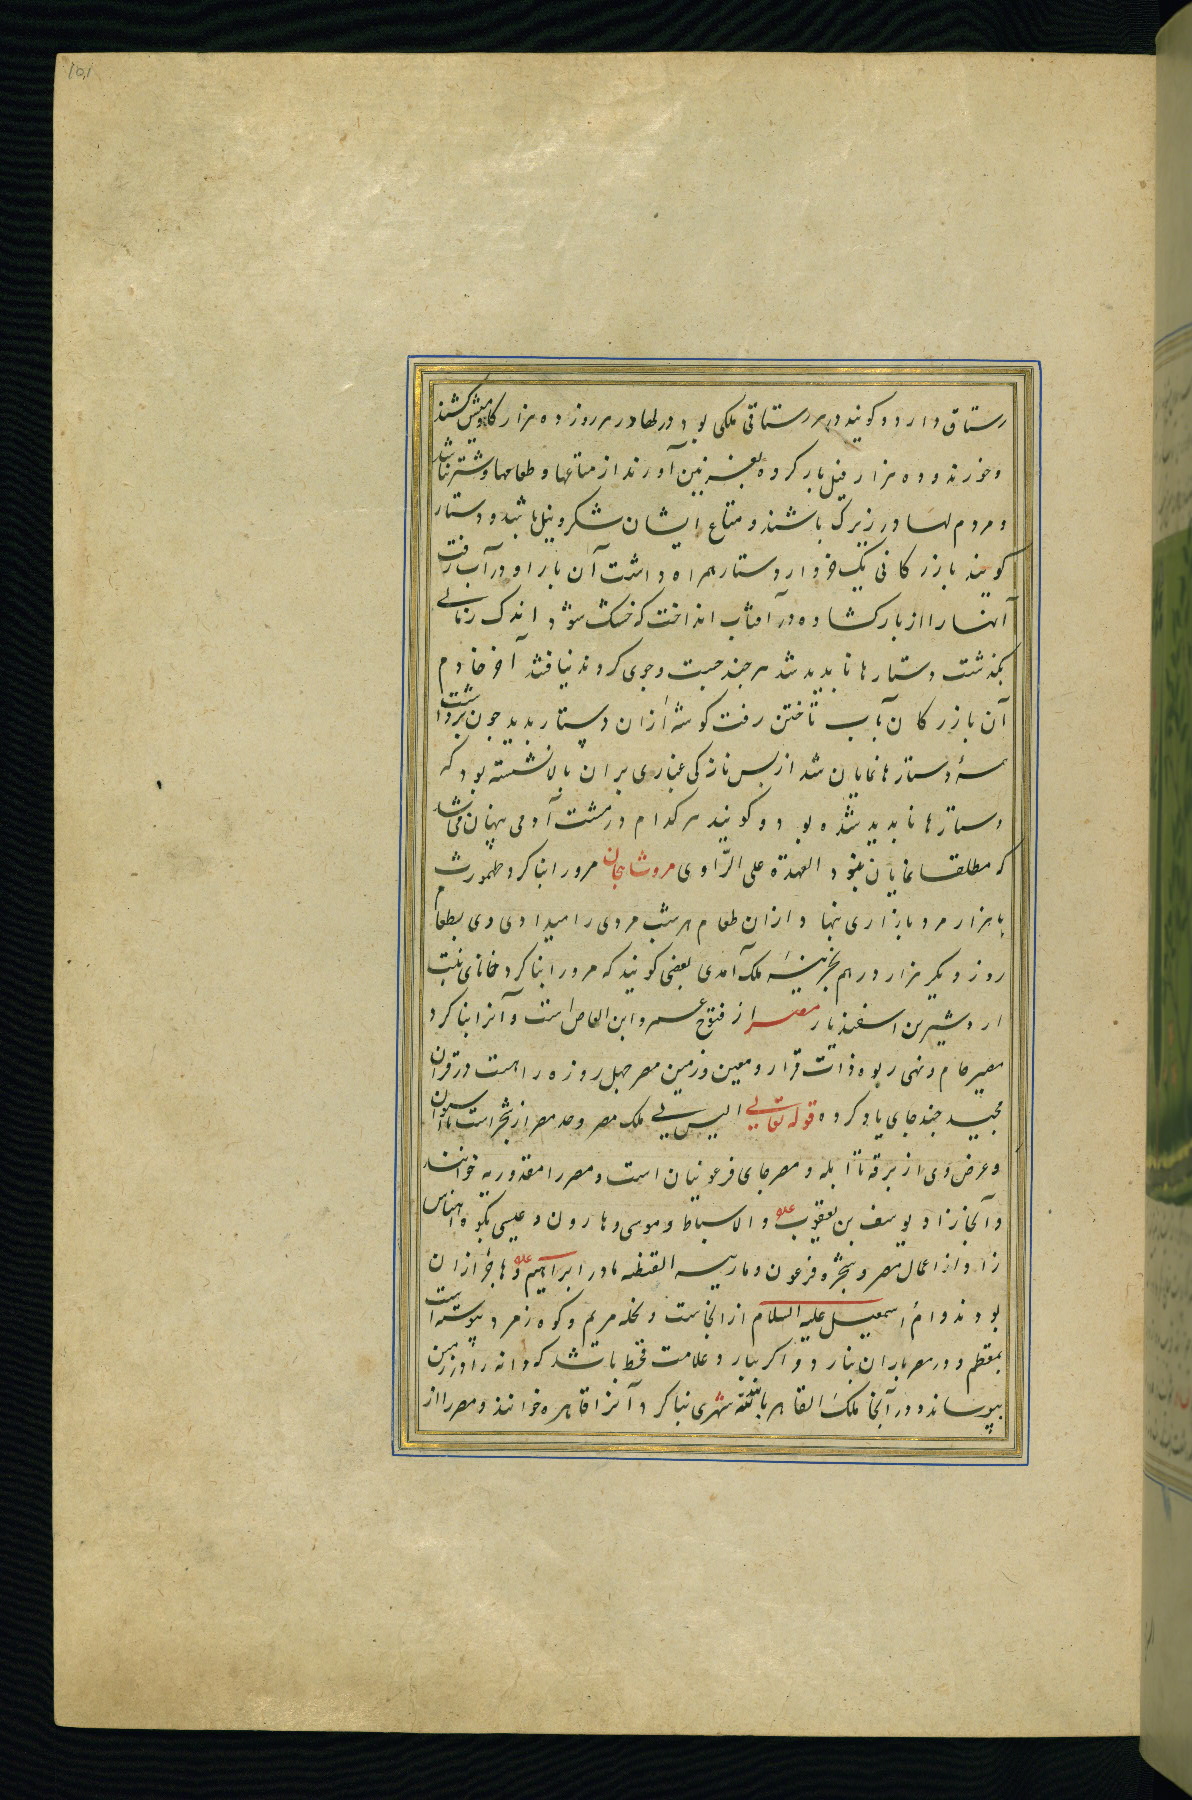 رستاق دارد و کویند در هر رستاقی ملکی بود در لها در هر روز ده هزار کاومیش کشند
و خورند و ده هزار فیل بار کرده بغزنین آورند از متاعها و طعامها و شتر نباشد
و مردم لها در زیرک باشند و متاع ایشان شکر و نیل باشد و دستار
کویند بازرکانی یک خروار دستار همراه داشت آن بار او در آب رفت
آنها را از بار کشاده در آفتاب انداخت که خشک شود اندک زمانی
بکذشت دستارها نابدید شد هر جند جست و جوی کردند نیافتند آخر خادم
آن بازرکان بآب تاختن رفت کوشهٔ ازان دستار بدید جون برداشت
همهٔ دستارها نمایان شد از بس نازکی غباری بران بالا نشسته بود که
دستارها نابدید شده بود و کویند هر کدام در مشت آدمی پنهان می شد
که مطلقا نمایان نبود العهدة علی الرّاوی مروشاهجان مرو را بنا کرد طهمورث
با هزار مرد بازاری بنها د ازان طعام هر شب مردی را میدادی وی بطعام
روز دیکر هزار درهم بخزینهٔ ملک آمدی بعضی کویند که مرو را بنا کرد خانای بنت
اردشیر بن اسفندیار مصر از فتوح عمرو ابن العاص است و آنرا بنا کرد
مصیر حام و نهی ربوه ذات قرار و معین و زمین مصر جهل روزه راهست و در قران
مجید جند جای یاد کرده قوله تعالی الیس لی ملک مصر و حد مصر از شجر است تا اسوان
و عرض وی از برقه تا ابله و مصر جای فرعونیان است و مصر را مقدوریه خوانند
و آنجا زاد یوسف بن یعقوب علم و الاسباط و موسی و هارون و عیسی بکوه اهناس
زاد و از اعمال مصر و شجره فرعون و ماریه القبطیه مادر ابراهیم علم و هاجر ازان
بودند و ام اسمعیل علیه السلام از انجاست و نخله مریم و کوه زمرد پیوسته است
بمقطم و در مصر باران نبارد و اکر ببارد علامت قحط باشد که دانه را در زمین
بپوساند و در آنجا ملک القاهر بالله شهری بنا کرد آنرا قاهره خوانند و مصر را از